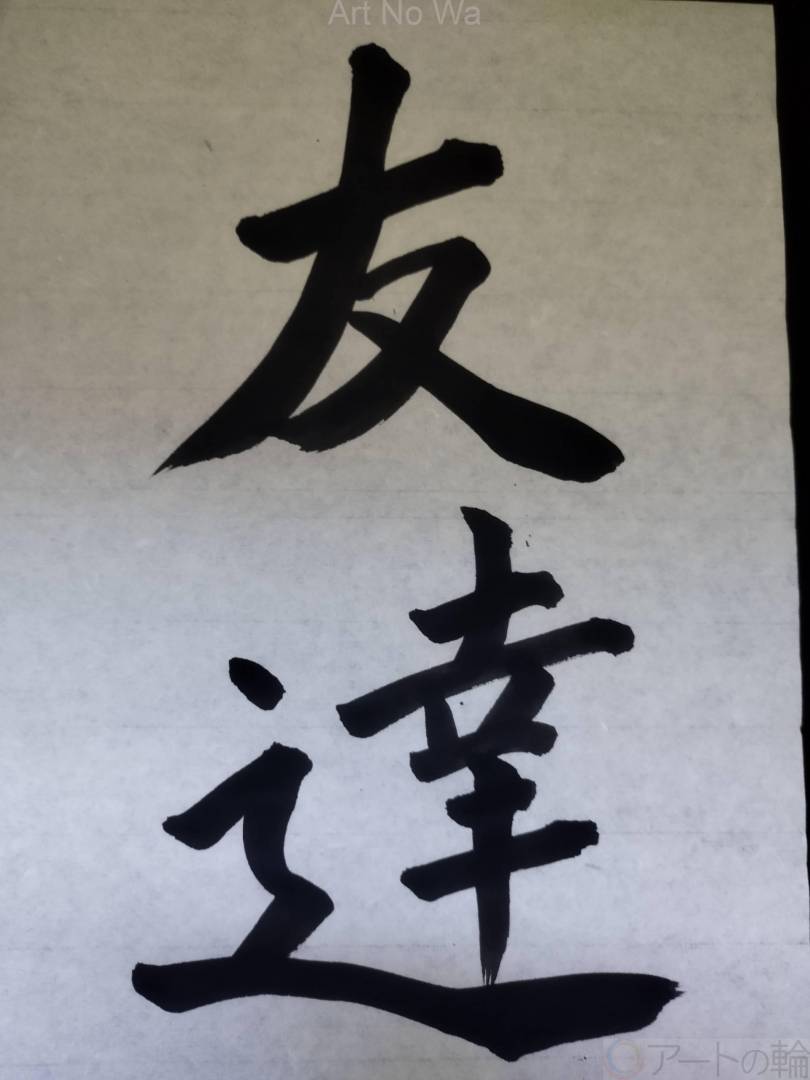 Art No Wa
友達
アートの輪